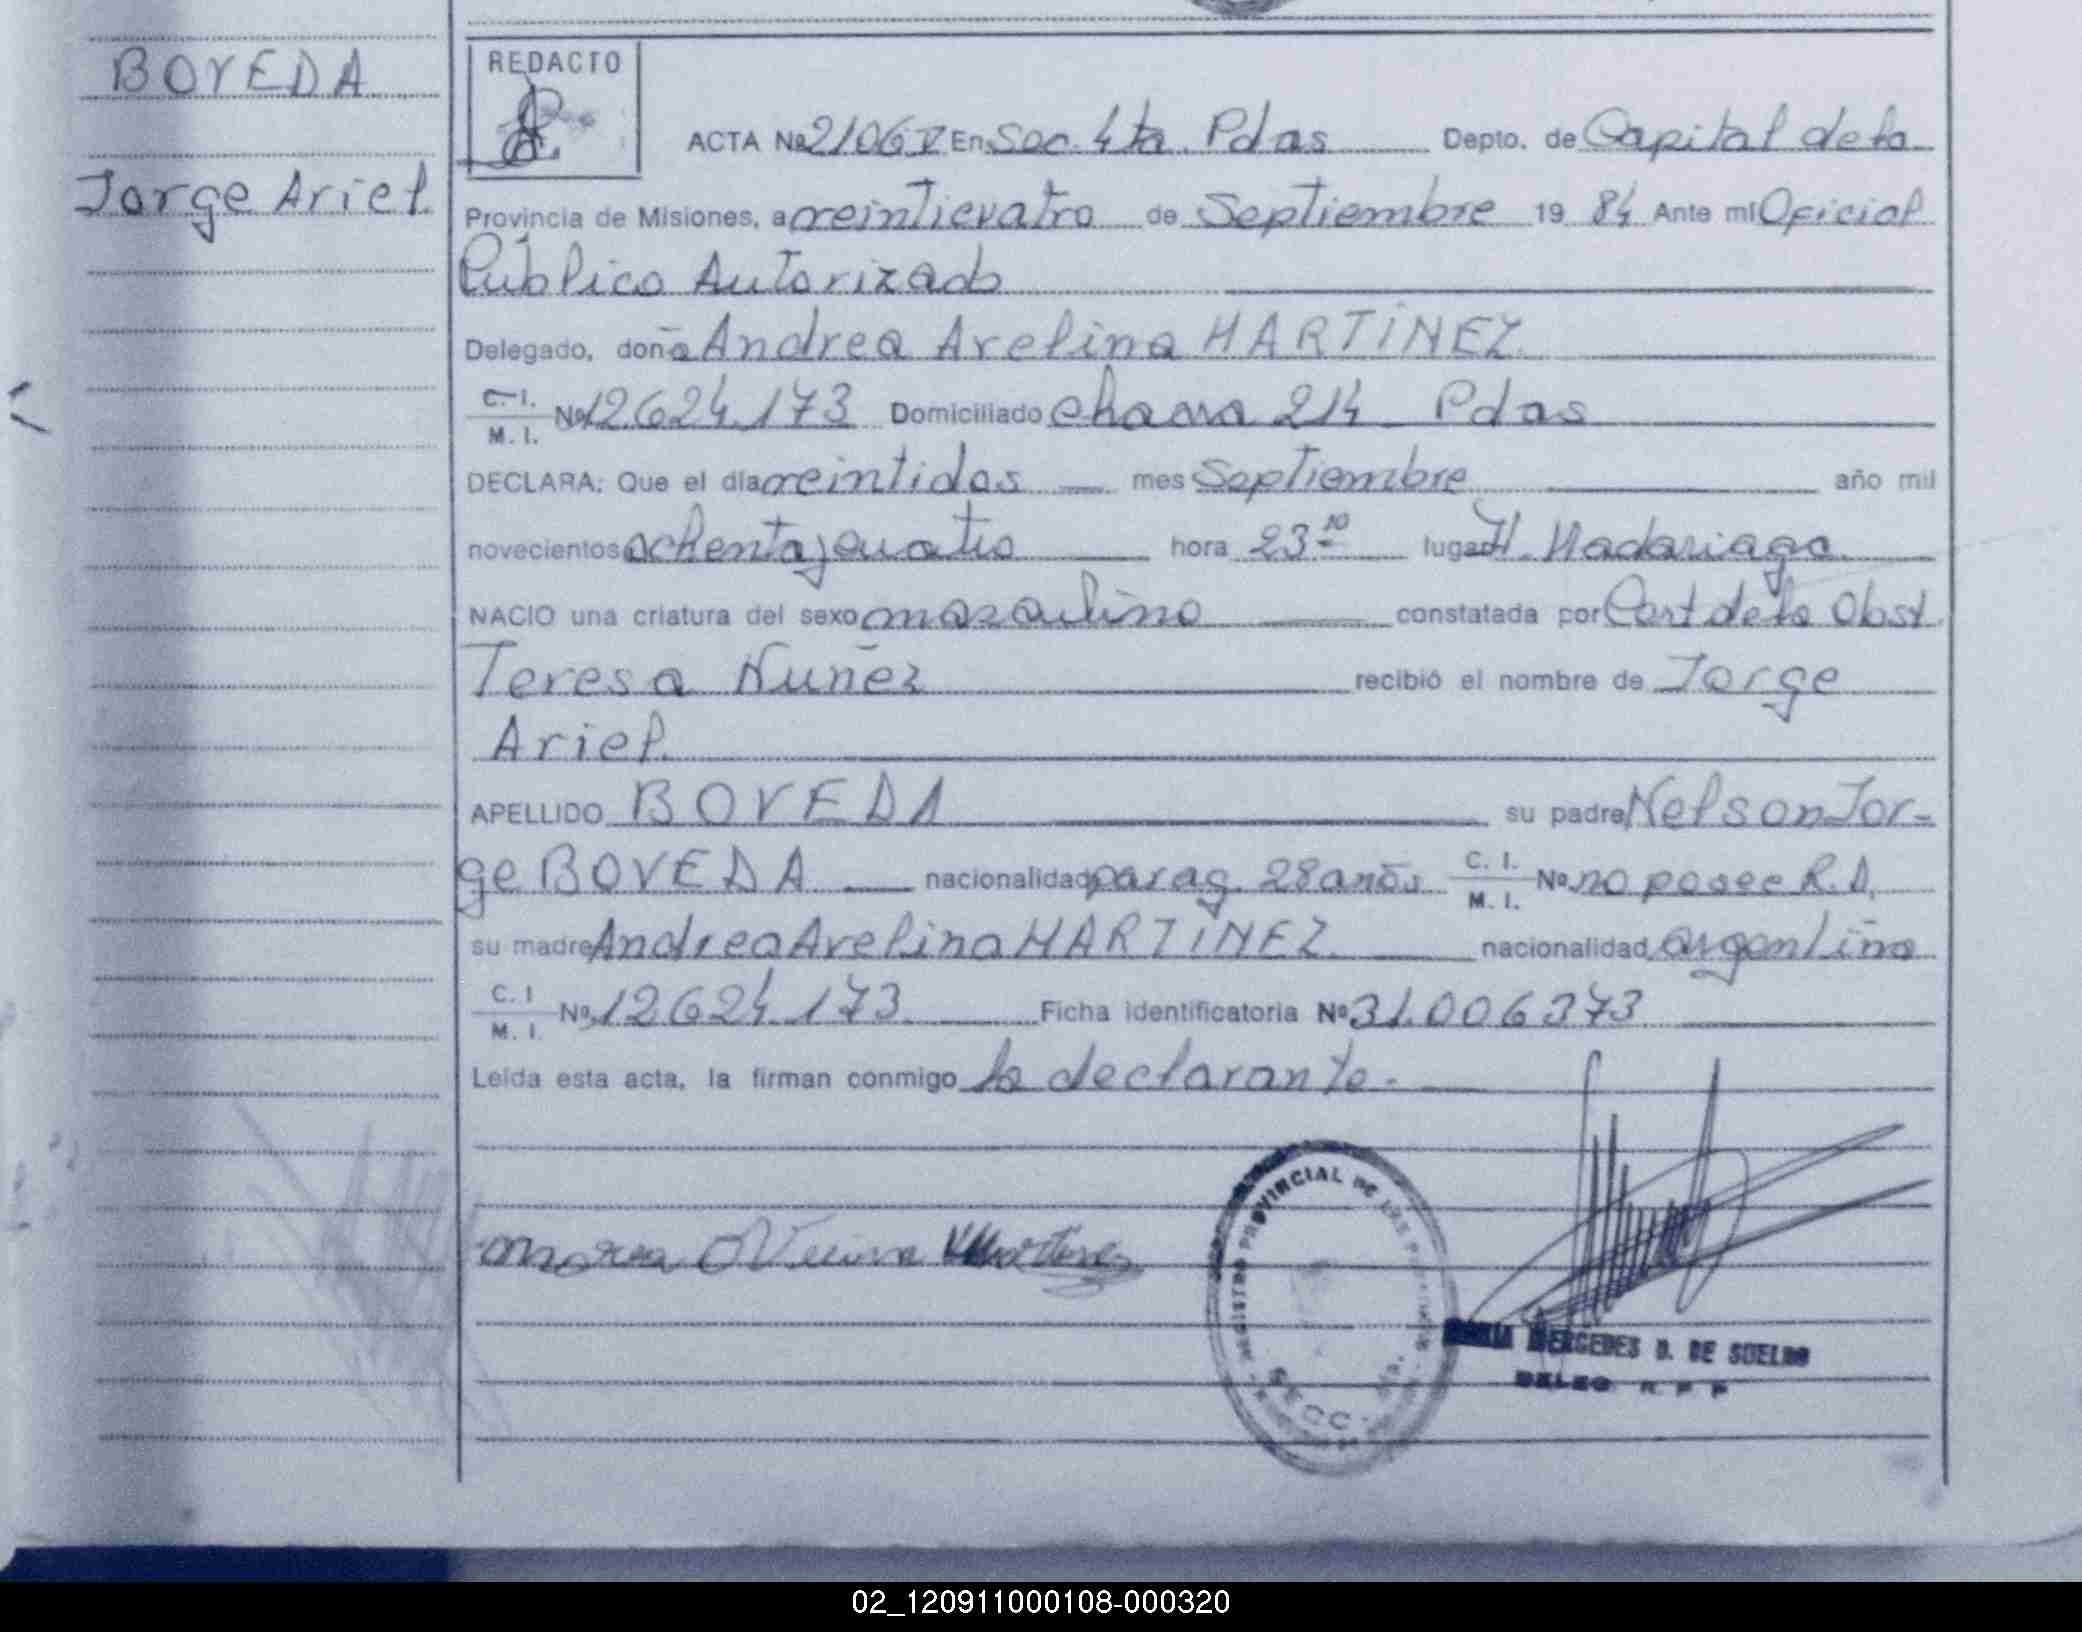 BOVEDA
Jorge Ariel
REDACTO
ACTA Nº 2106 V En Sec. 4ta. Pdas Depto. de Capital de la
Provincia de Misiones, a veinticuatro de Septiembre 19 84 Ante mi Oficial
Público Autorizado
Delegado, doña Andrea Avelina MARTINEZ
C. I. M. I. Nº 12.624.173 Domiciliado chacra 214 Pdas
DECLARA: Que el día veintidos mes Septiembre año mil
novecientos ochenta y cuatro hora 23 10 lugar H. Madariaga
NACIO una criatura del sexo masculino constatada por Cert de la Obst.
Teresa Nuñez recibió el nombre de Jorge
Ariel.
APELLIDO BOVEDA su padre Nelson Jor-
ge BOVEDA nacionalidad parag. 28 años C. I. M. I. Nº no posee R.A.
su madre Andrea Avelina MARTINEZ nacionalidad argentina
C. I M. I. Nº 12624.173 Ficha identificatoria Nº 31.006373
Leída esta acta, la firman conmigo la declarante.-
REGISTRO PROVINCIAL DE LAS PERSONAS
SECC. 4ta.
MERCEDES D. DE SOELRO
DELEG. R. P. P
02_120911000108-000320